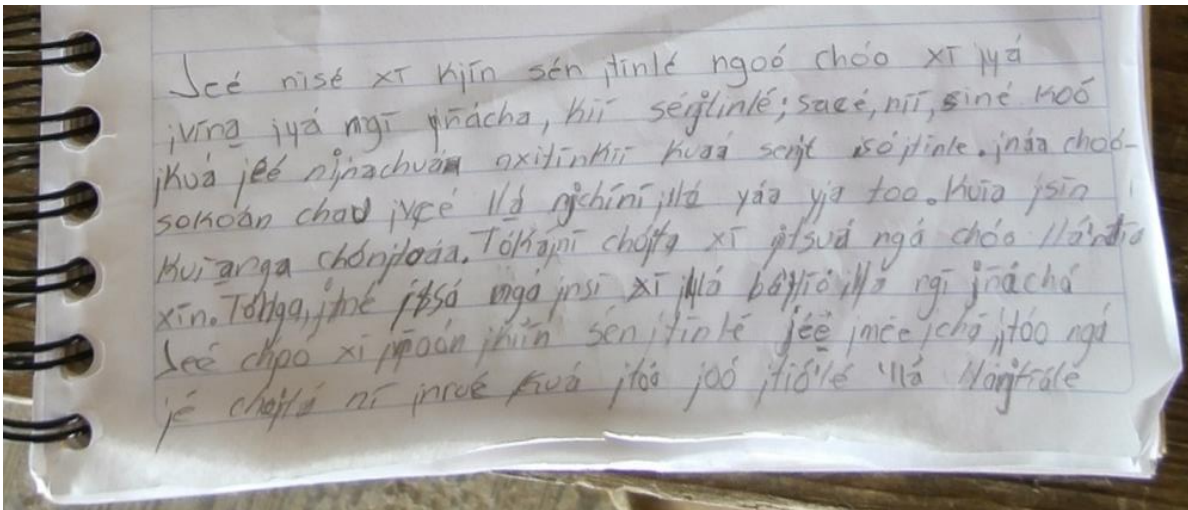 Jcé nisé xī kjīn sén jtīnlé ngoó chóo xī jyá
jvīna jyá ngī jñácha, kií sénjtīnlé; sacé, níí, siné koó
jkuá jéé nijnachuán nxitīnkīī kuaá senjt isó jtīnle. jnáa choó-
sokoán chad jvcé llá njchíní, llá yáa yja too. Kuīa jsīn
kuīanga chónjtoáa. Tókajnī chójta xī jtsuá ngá chóo llándīa
xīn. Tónga, jmé jtsá ngá jnsī xī jllá báttīó, llá ngī jñáchá
Jeé chóó xī jmoón jkīīn sén jtīnlé jéé jmée jchá jtóo ngá
jé chójtá ní jnrué kuá jtóá joó jtīólé llá